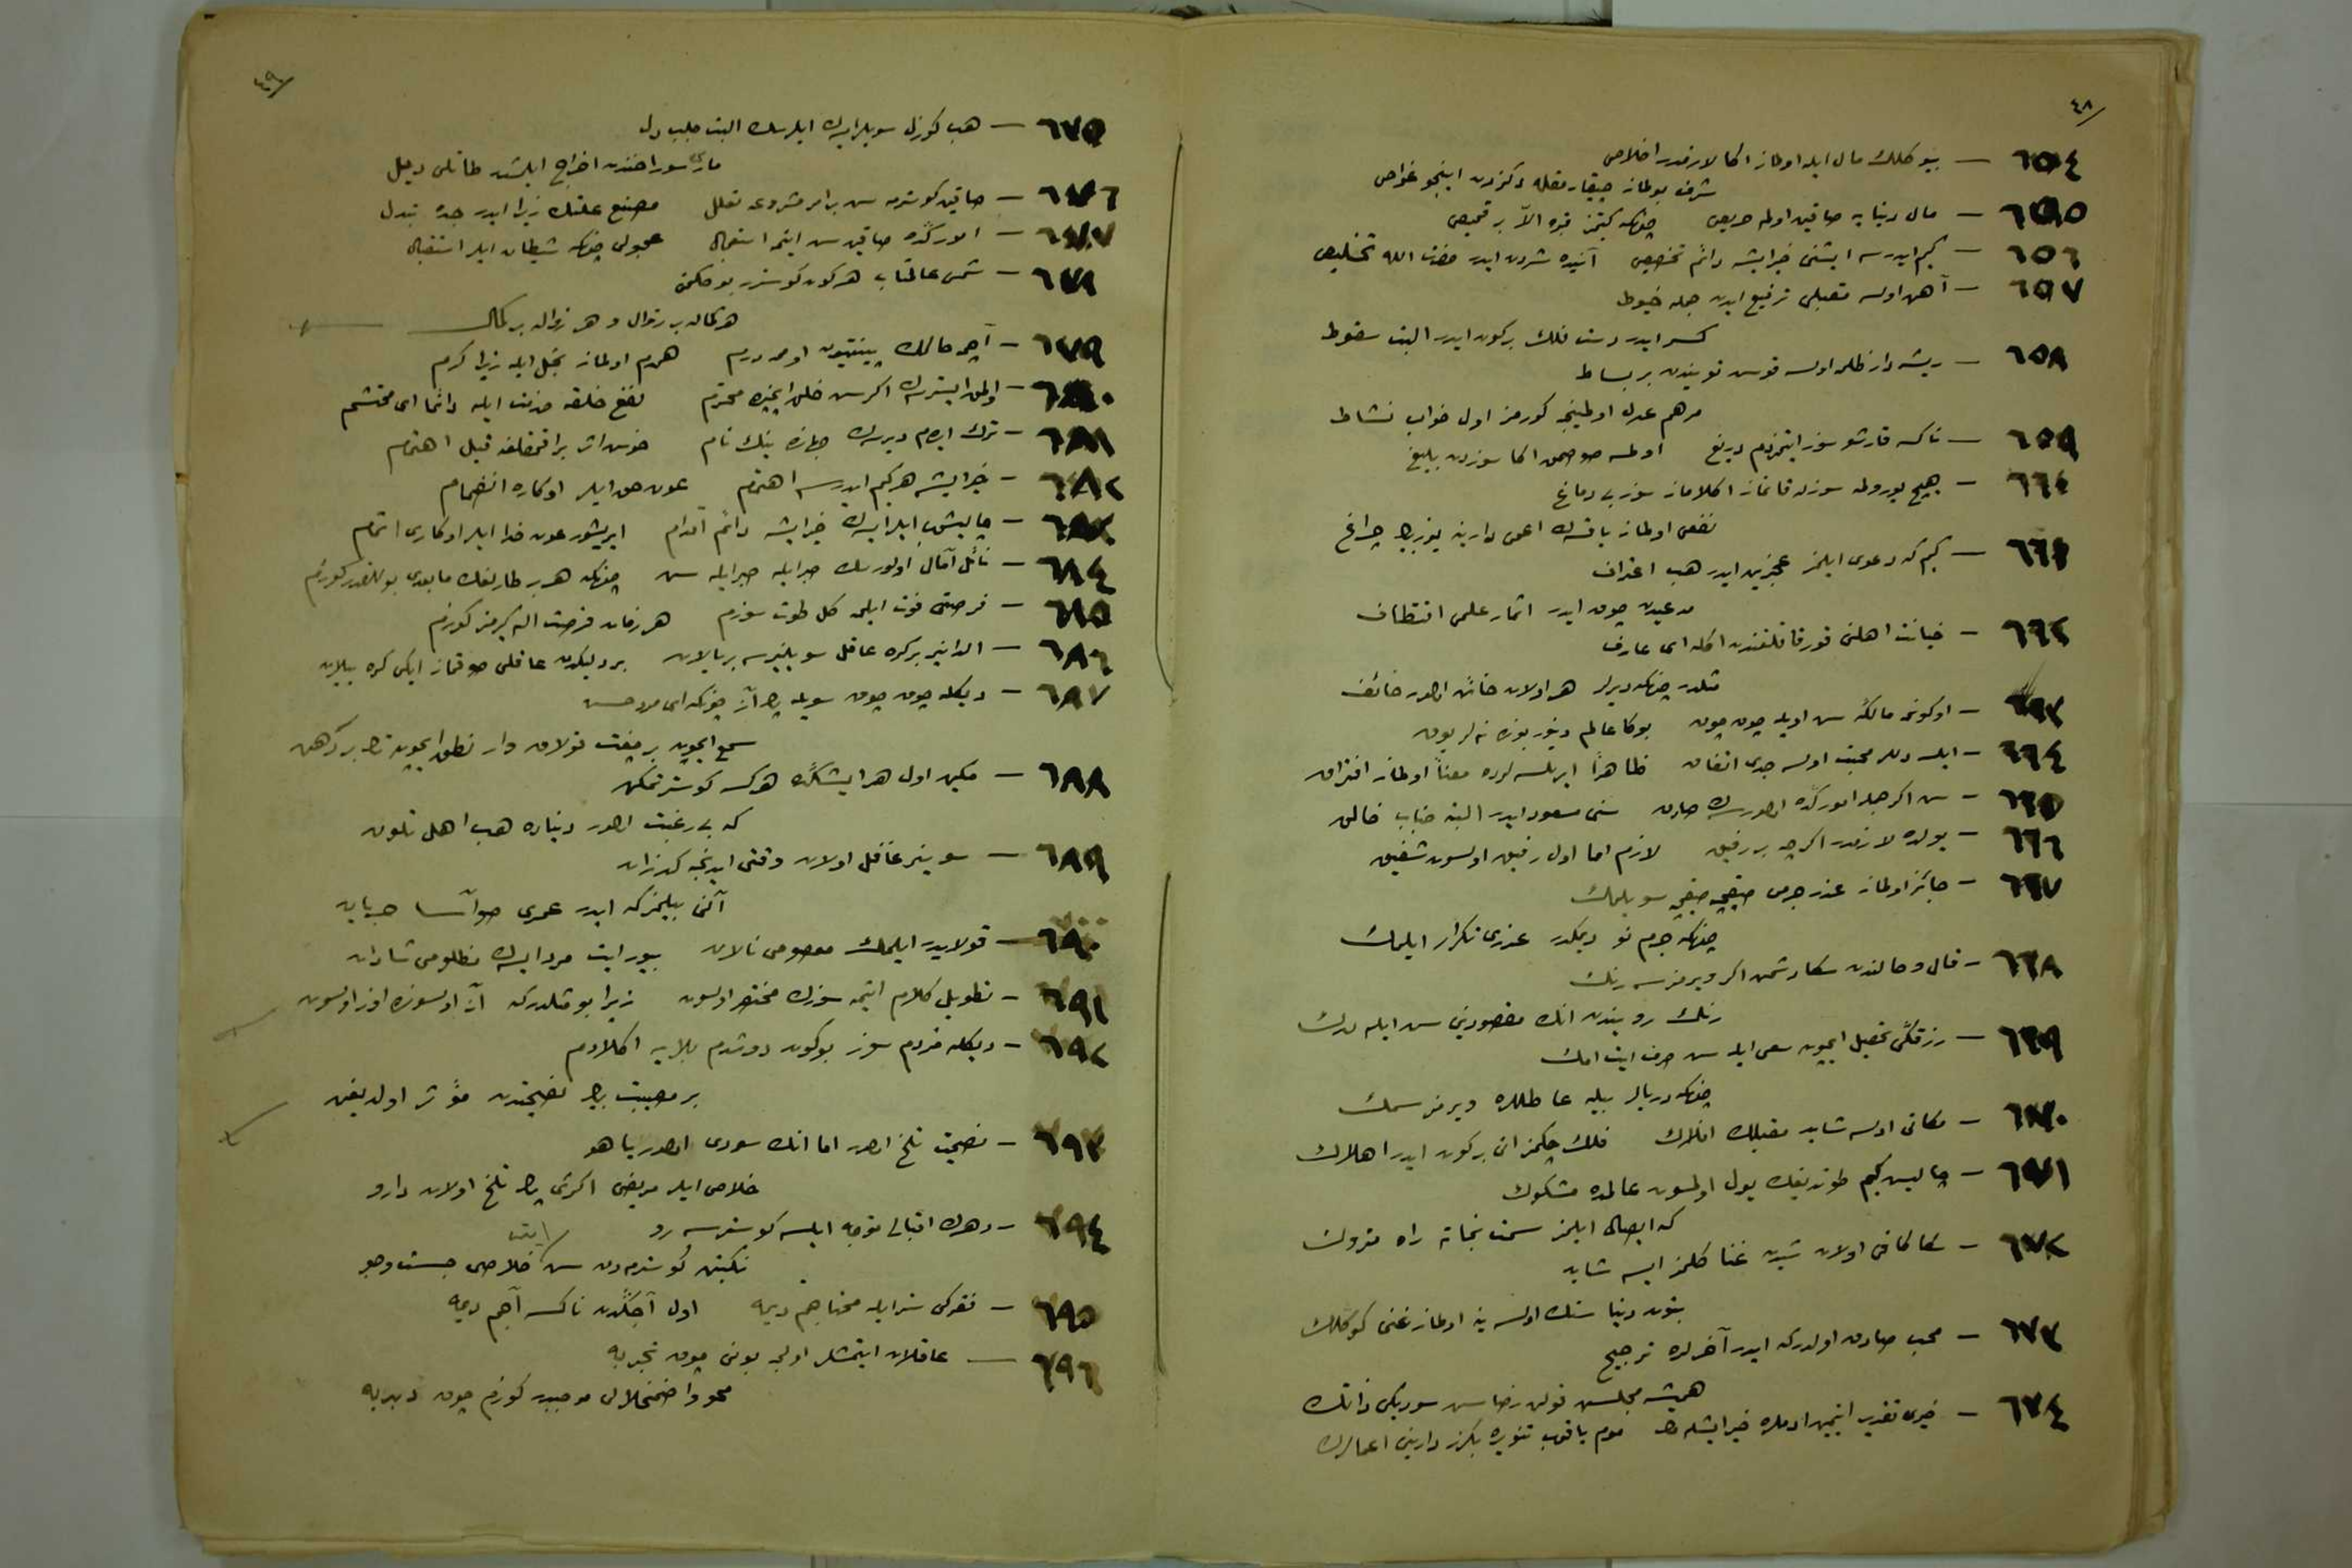 ٤٨
٦٥٤ — بيوكلك مال ايله اولماز اكا لازمدر اخلاص
شرف بولماز چيقارمقله دكزدن اينجو غواص
٦٥٥ — مال دنيايه صاقين اولمه حريص چونكه كيتمز قبره الّا بر قميص
٦٥٦ — كيم ايدرسه ايشنى خير ايشه دائم تخصيص آنيده شردن ايدر حضرت الله تخليص
٦٥٧ — آهن اولسه ترفيع ايدن جمله خيوط
كسر ايدر دست فلك بر كون ايدر البت سقوط
٦٥٨ — ريشه دار ظلم اولسه قوس بر بساط
مرهم عدل اولمينجه كورمز اول خواب نشاط
٦٥٩ — ناكسه قارشو سوز ايتمزدم دريغ اولمسه صوصمق اكا سوزدن بليغ
٦٦٠ — هيچ يورولمه سوزله قانماز اكلاماز سوز بى دماغ
نفعى اولماز ياقسه ك اعمى دارينه يوز بيك چراغ
٦٦١ — كيم كه دعوى ايلمز عجزين ايدر هب اعتراف
مدعيدن چوق ايدر اثمار علمى اقتطاف
٦٦٢ — خيانت اهلنى قورقاقلغندن اكله اى عارف
مثلدر چونكه ديرلر هر اولان خائن اولور خائف
٦٦٣ — اوكونمه مالكه سن اويله چوق چوق بوكا عالم دينور بوزه نه لر يوق
٦٦٤ — ايله دللر محبت اولسه جدى اتفاق ظاهراً ايريلسه لرده معناً اولماز افتراق
٦٦٥ — سن اكر جمله اموركده اولورسه ك صادق سنى مسعود ايدر البته جناب خالق
٦٦٦ — يولده لازمدر اكرچه بر رفيق لازم اما اول رفيق اولسون شفيق
٦٦٧ — جائز اولماز عذر جرمى صيقجه صيقجه سويلمك
چونكه جرم نو ديمكدر عذرى تكرار ايلمك
٦٦٨ — قال و حالندن سكا دشمن اكر ويرمزسه رنك
رنك رويندن انك مقصودينى سن ايله درك
٦٦٩ — رزقكى تحصيل ايچون سعى ايله سن صرف ايت امك
چونكه دريالر بيله عاطللره ويرمز سمك
٦٧٠ — مكانى اولسه شايد مقبلك افلاك فلك چكمز انى بر كون ايدر اهلاك
٦٧١ — چاليش كيم طوتديغك يول اولمسون عالمده مشكوك
كه ايصال ايلمز سمت نجاته راه متروك
٦٧٢ — سكا كافى اولان شيدن غنا كلمز ايسه شايد
بتون دنيا سنك اولسه ينه اولماز غنى كوكلك
٦٧٣ — محب صادق اولدركه ايدر آخرلره ترجيح
هميشه مجلس قولن رضاسن سوديكى ذاتك
٦٧٤ — خيرى تقدير ايتمين ادملره خير ايشلمه موم ياقوب تنويره بكزر دارينى اعمالرك
٤٩
٦٧٥ — هب كوزل سويلر ايسه ك ايلرسك البت جلب دل
مارى سوراخندن اخراج ايلشدر طاتلى ديل
٦٧٦ — صاقين كوسترمه سن بر امر مشروعه تعلل مصنع علتك زيرا ايدر جده تبدل
٦٧٧ — امورکده صاقين سن ايتمه استعجال عجولى چونكه شيطان ايلر استقبال
٦٧٨ — شمس عالمتاب هر كون كوسترر بو حكمتى
هر كماله بر زوال و هر زواله بر كمال
٦٧٩ — آچمه مالك يينتيون اومه درم همدم اولماز بخل ايله زيرا كرم
٦٨٠ — اولمق ايسترسه ك اكر سن خلق ايچره محترم نفع خلقه خدمت ايله دائما اى محتشم
٦٨١ — ترك ايدم ديرسه ك جهانده نيك نام حسن اثر براقمقلغه قيل اهتمام
٦٨٢ — خير ايشه هر كيم ايدرسه اهتمام عون حق ايلر او كاره انضمام
٦٨٣ — چاليشوب ايلر ايسه ك خير ايشه دائم اقدام ايريشور عون خدا ايلر او كارى اتمام
٦٨٤ — نائل آمال اولورسك صبر ايله صبر ايله سن چونكه هر بر طارلغك مابعدى بوللقدر كوزم
٦٨٥ — فرصتى فوت ايلمه كل طوت سوزم هر زمان فرصت اله كيرمز كوزم
٦٨٦ — الدانير بر كره عاقل سويلنيرسه بر يالان بر دليكدن عاقلى صوقماز ايكى كره ييلان
٦٨٧ — ديكله چوق چوق سويله پك آز چونكه اى مرد حسن
سمع ايچون بر چفت قولاق وار نطق ايچون تك بر دهن
٦٨٨ — متين اول هر ايشكده هركسه كوستر تمكن
كه بى رغبت اولور دنياده هب اهل تلون
٦٨٩ — سوينير غافل اولان وقتى ايدنجه كذران
آنى بيلمز كه ايدر عمرى صو آسا جريان
٦٩٠ — قولايدر ايلمك معصومى نالان بيور ايت مرد ايسه ك مظلومى شادان
٦٩١ — تطويل كلام ايتمه سوزك مختصر اولسون زيرا بو مثلدركه آز اولسونده اوز اولسون
٦٩٢ — ديكله مزدم سوز بوكون دوشدم بلايه اكلادم
بر مصيبت بيك نصيحتدن مؤثر اولديغن
٦٩٣ — نصيحت تلخ اولور اما انك سودى اولور ياهو
خلاص ايلر مريضى اكثرى پك تلخ اولان دارو
٦٩٤ — دهرك اقبالى توجه ايلسه كوسترسه رو
نكبتن كوسترمه دن سن ايت خلاصى جست و جو
٦٩٥ — فقركى ستر ايله محتاجم ديمه اول آجكدن ناكسه آجم ديمه
٦٩٦ — عاقلان ايتمشلر اولجه بونى چوق تجربه
محو و اضمحلالى موجبدر كوزم چوق دبدبه